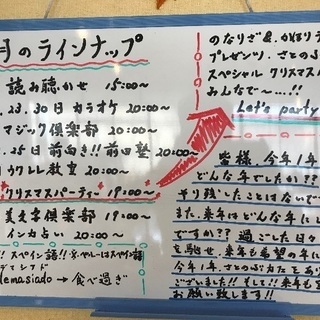 月のラインナップ
読み聴かせ 15:00~
23,30日 カラオケ 20:00~
マジック倶楽部 20:00~
.25日 前向き!!前田塾 20:00~
ウクレレ教室 20:00~
クリスマスパーティー 19:00~
美文字倶楽部 19:00~
インカ占い 20:00~
! スペイン語!! ※ペルーはスペイン語
demasiado → 食べ過ぎ
のなりざ&.かほりラ
プレゼンツ. さとのぶ
スペシャル クリスマス
みんなで~…!!
Let's party
皆様、今年1年
どんな年でしたか??
やり残したことはないで
また、来年はどんな年にし
ですか?? 過ごした日々
を馳せ、来年も希望の年に
今年1年、さとのぶカたとあり
ございました!!そして!!来年も宜
お願い致します!!